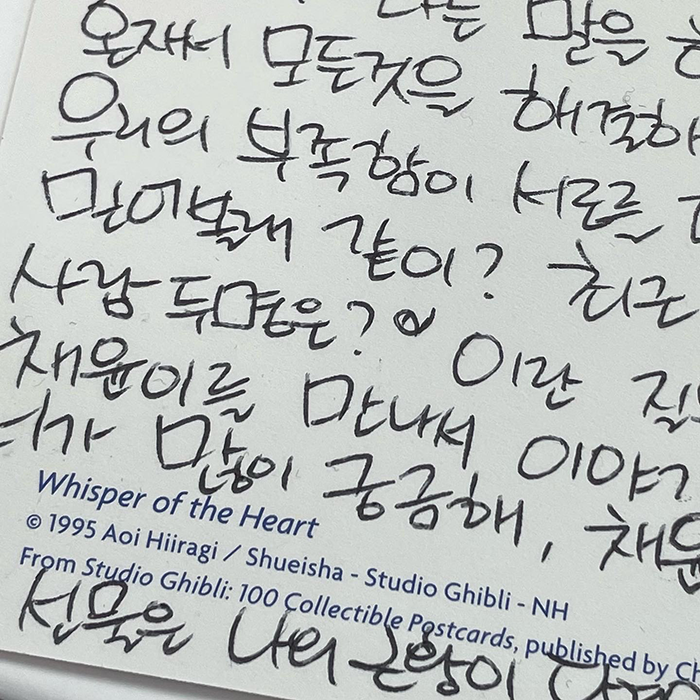 나는 말을
온재서 모든것을 해결하
우리의 부족함이 서로를
만어볼래 같이? 최근
사람 두명은? ♡ 이란 질
채윤이를 만나서 이야기
너가 많이 궁금해, 채윤
Whisper of the Heart
© 1995 Aoi Hiiragi / Shueisha - Studio Ghibli - NH
From Studio Ghibli: 100 Collectible Postcards, published by Ch
선물은 나의